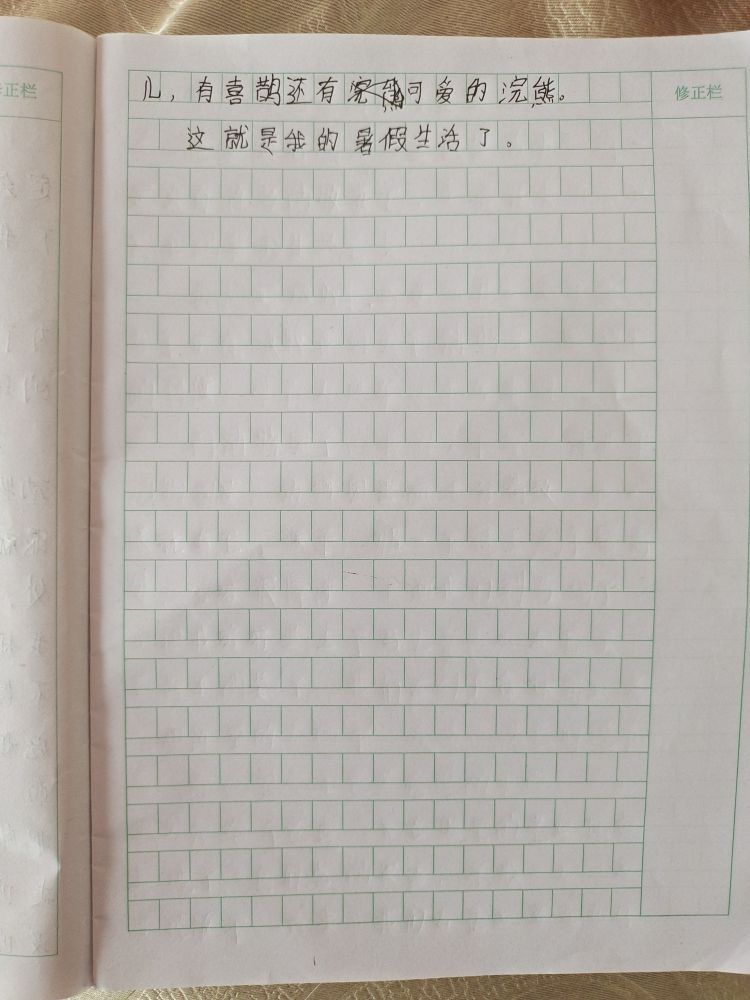 修正栏
正栏
儿，有喜鹊还有可爱的浣熊。
这就是我的暑假生活了。